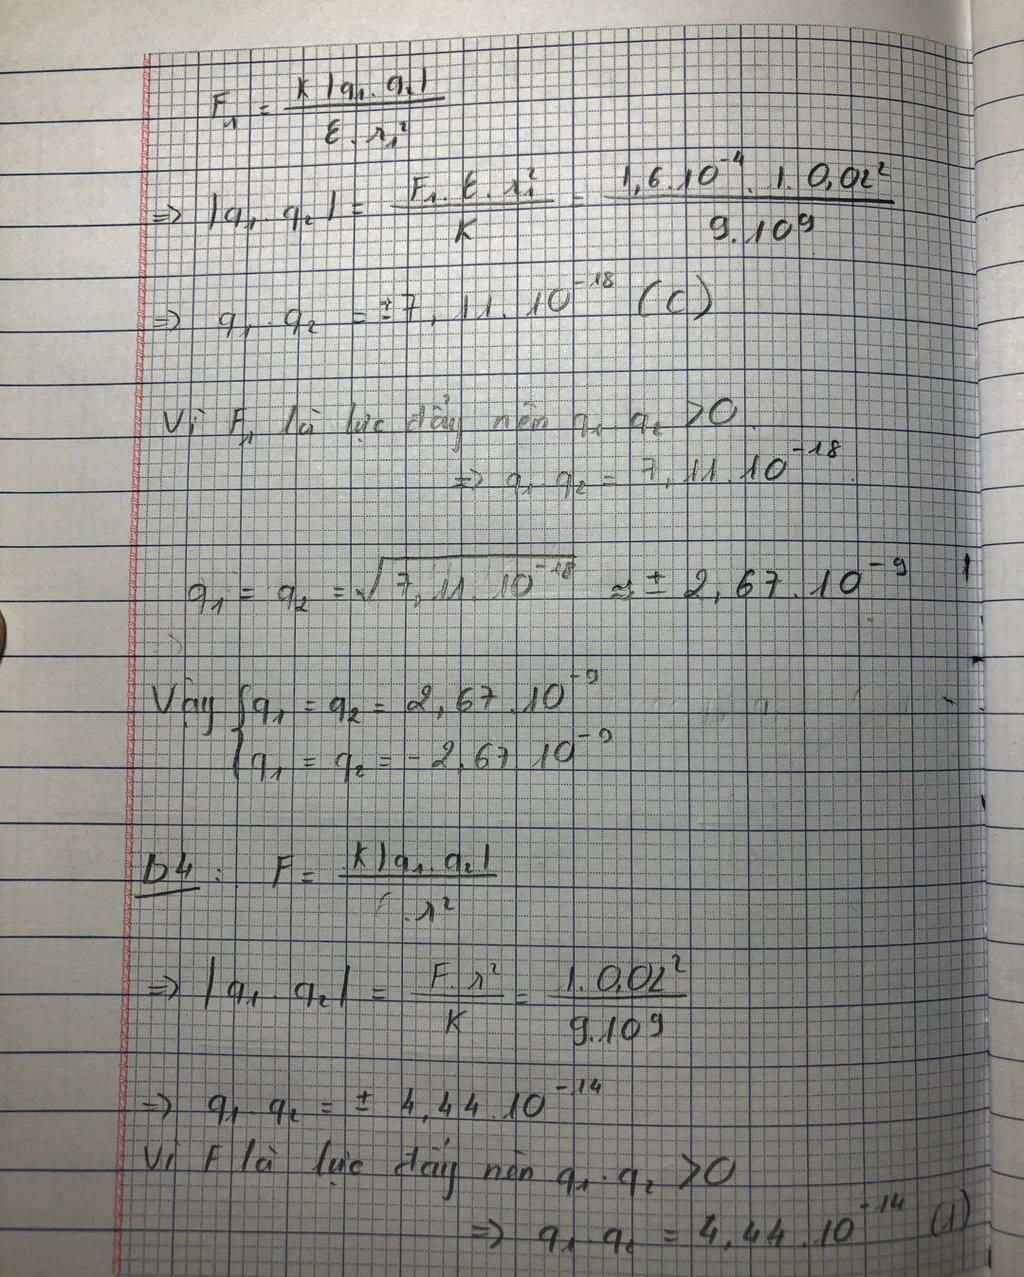 F₁ = K|q₁.q₂| / ε.r₁²
=> |q₁.q₂| = F₁.ε.r₁² / K = 1,6.10⁻⁴.1.0,02² / 9.10⁹
=> q₁.q₂ = ±7,11.10⁻¹⁸ (C)
Vì F₁ là lực đẩy nên q₁.q₂ >0.
=> q₁.q₂ = 7,11.10⁻¹⁸.
q₁ = q₂ = √7,11.10⁻¹⁸ ≈ ± 2,67.10⁻⁹
=>
Vậy { q₁ = q₂ = 2,67.10⁻⁹
q₁ = q₂ = -2,67.10⁻⁹
b4: F = K|q₁.q₂| / ε.r²
=> |q₁.q₂| = F.r² / K = 1.0,02² / 9.10⁹
=> q₁.q₂ = ± 4,44.10⁻¹⁴
Vì F là lực đẩy nên q₁.q₂ >0
=> q₁.q₂ = 4,44.10⁻¹⁴ (1)